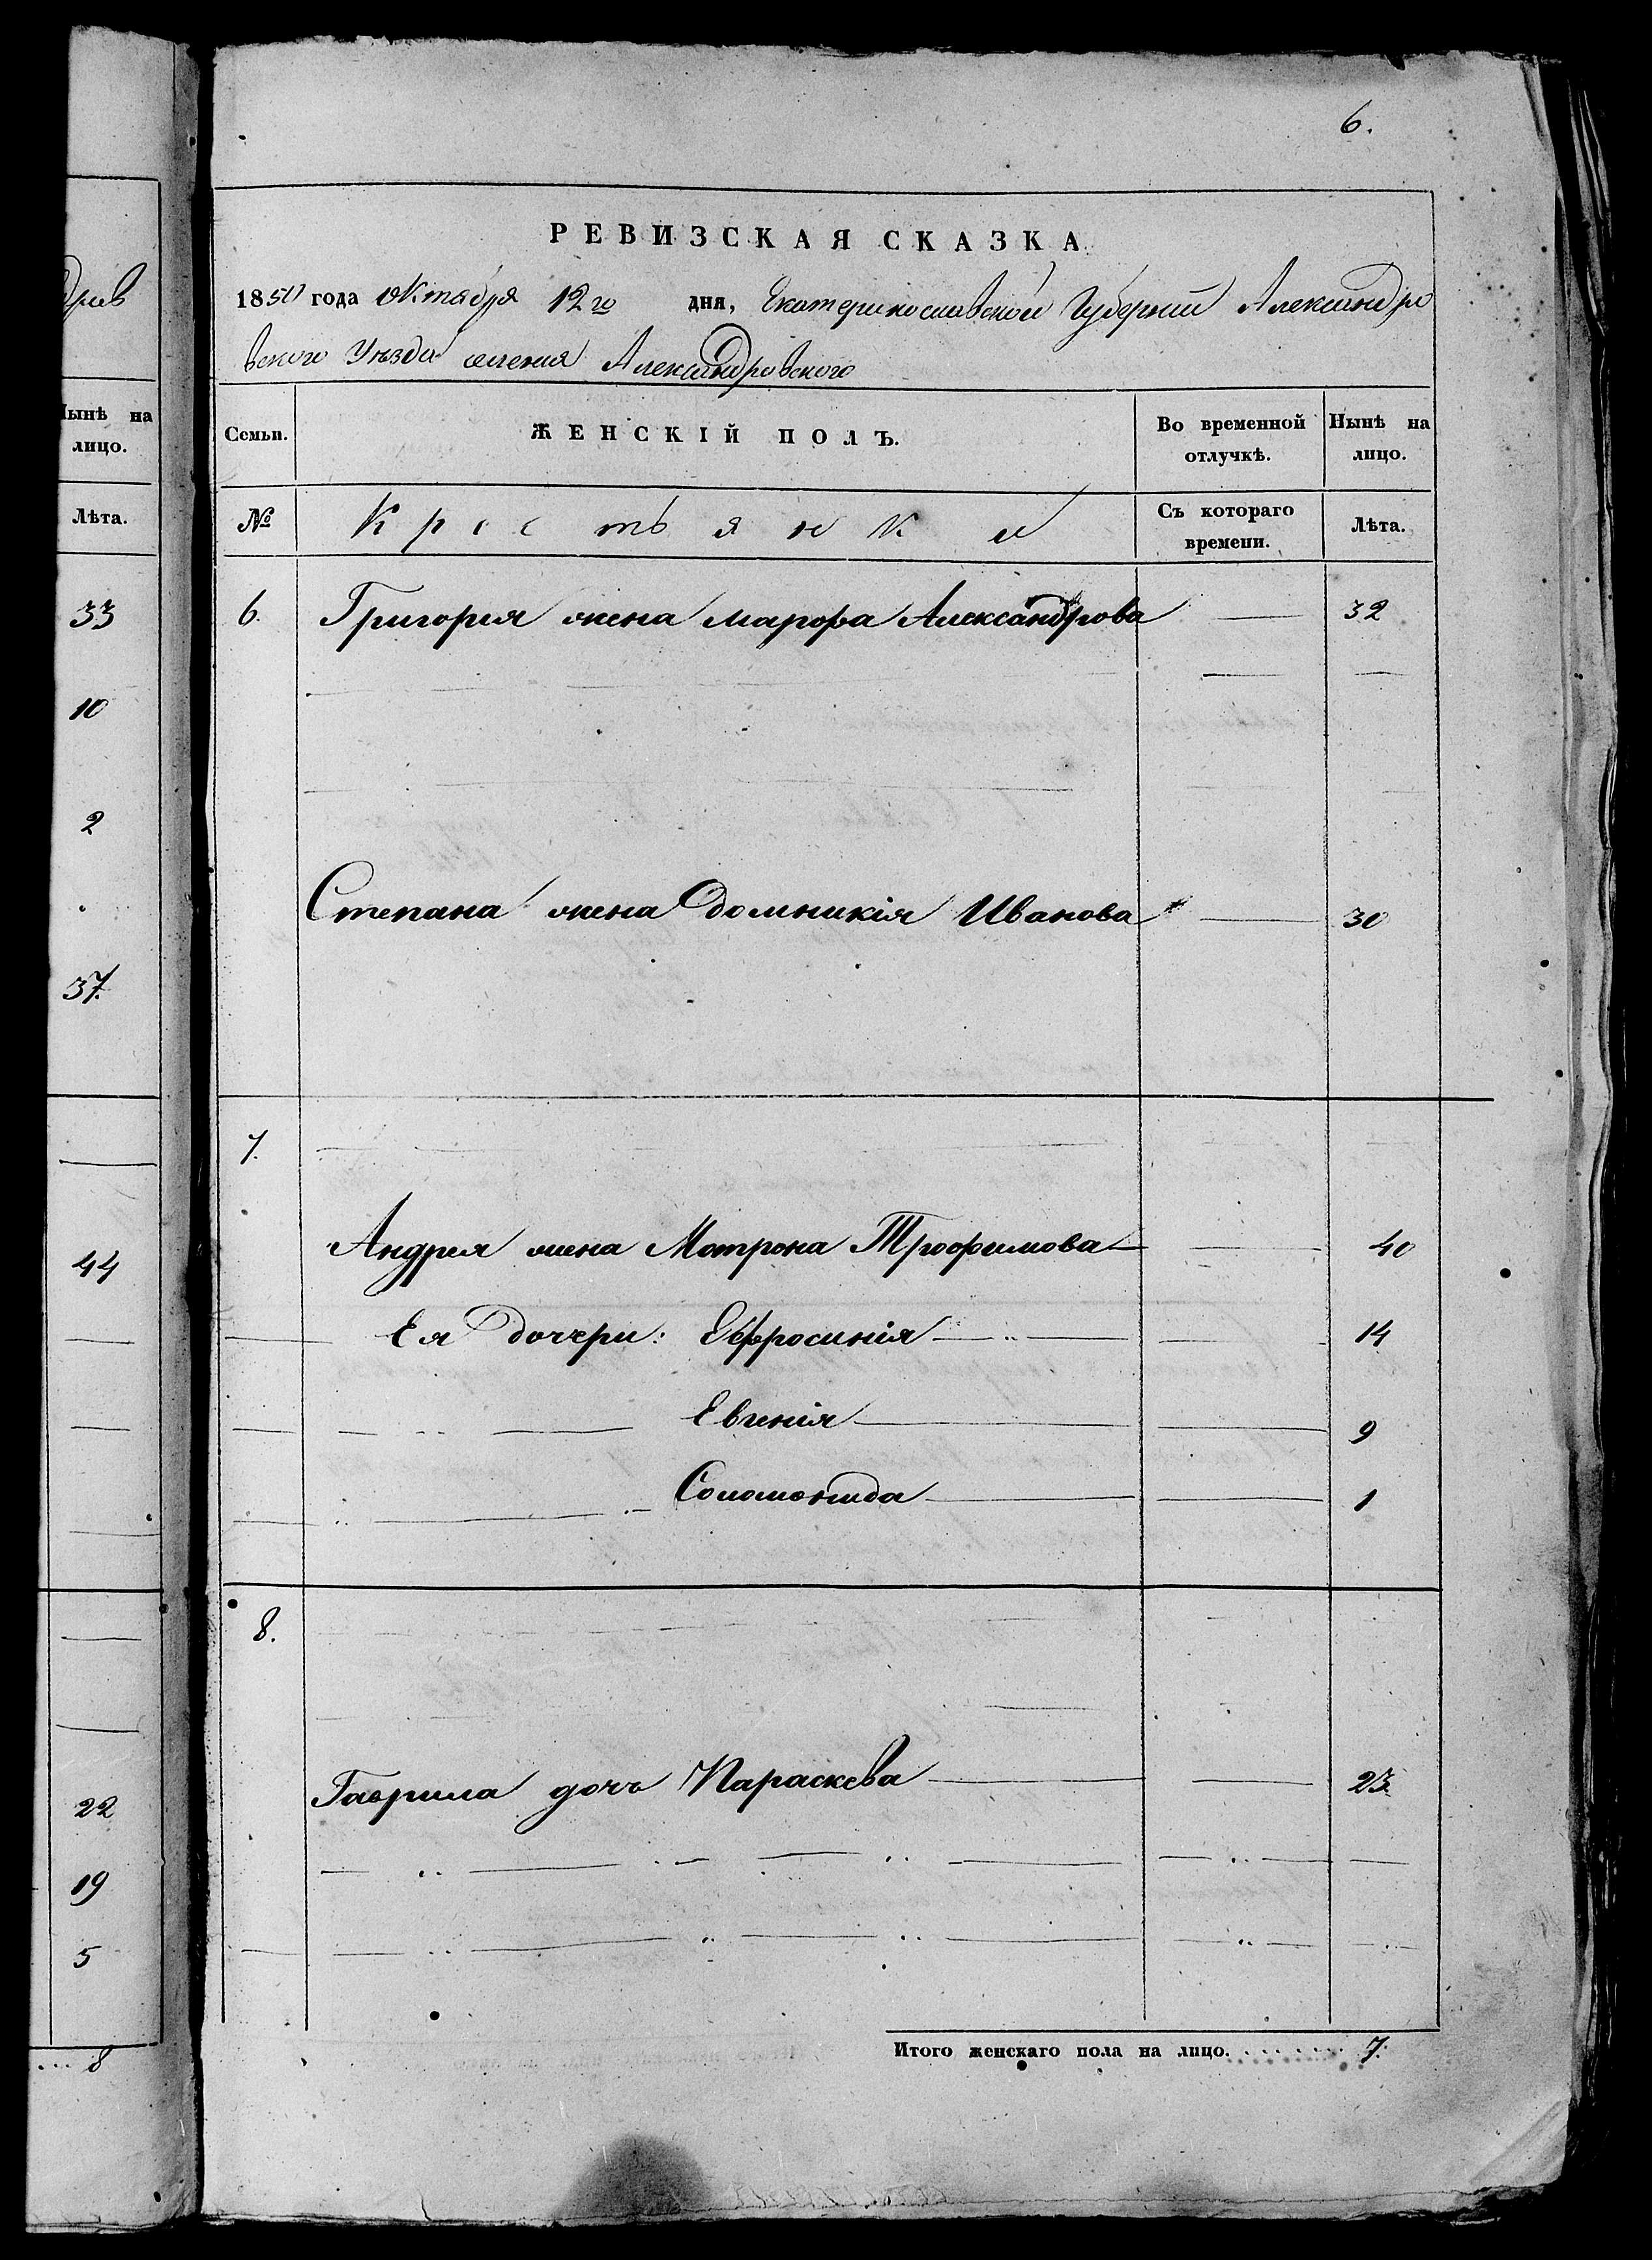 6.
дров
РЕВИЗСКАЯ СКАЗКА
1850 года Октября 12го дня, Екатеринославской Губернии Александро
вского Уезда селения Александровского
Нынѣ на
лицо.
Лѣта.
Семьи. ЖЕНСКІЙ ПОЛЪ. Во временной отлучкѣ. Нынѣ на лицо.
№ Крестьянки Съ котораго времени. Лѣта.
33
10
2
37.
44
22
19
5
8
6. Григория жена Марфа Александрова 32
Степана жена Домникія Иванова 30
7.
Андрея жена Матрона Трофимова 40
Ея дочери: Ефросинія 14
Евгенія 9
Соломонида 1
8.
Гаврила дочь Параскева 23
Итого женскаго пола на лицо. 7.